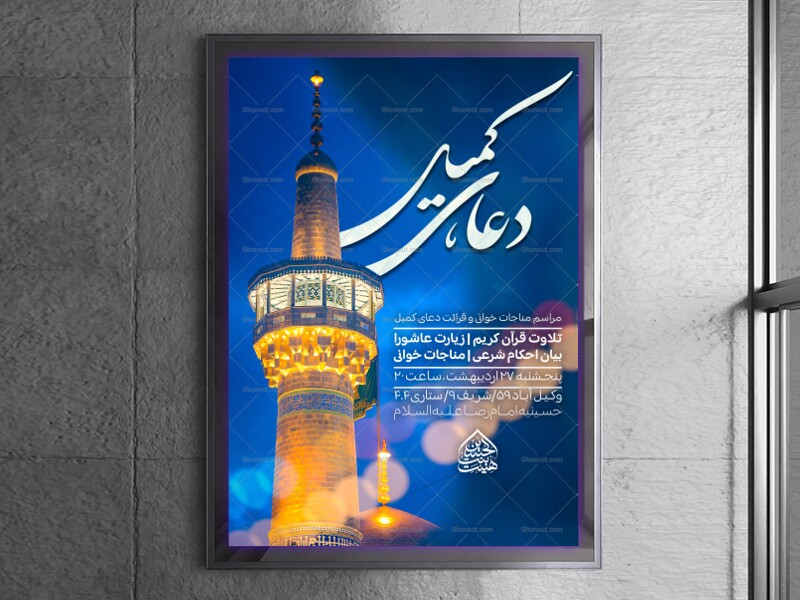 دعای
کمیل
مراسم مناجات خوانی و قرائت دعای کمیل
تلاوت قرآن کریم | زیارت عاشورا
بیان احکام شرعی | مناجات خوانی
پنجشنبه ۲۷ اردیبهشت، ساعت ۲۰
وکیل آباد ۵۹/شریف ۹/ ستاری ۴.۴
حسینیه امام رضا علیه السلام
Ghonoot.com